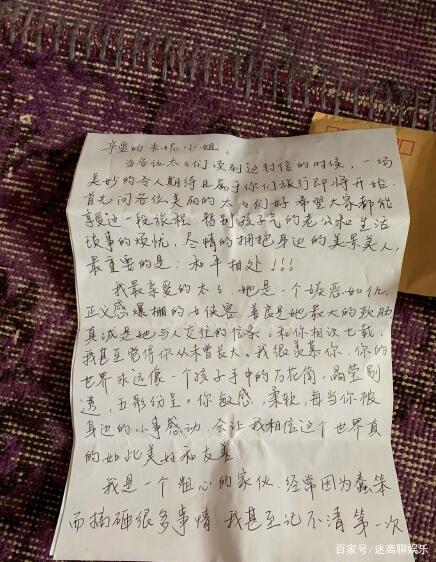 亲爱的米妮小姐,
当各位太太们读到这封信的时候,一场
美妙的令人期待且属于你们旅行即将开始.
首先问各位美丽的太太们好希望大家都能
享受这一段旅程.暂别孩子气的老公和生活
琐事的烦忧,尽情的拥抱身边的美景美人,
最重要的是:和平相处!!!
我最亲爱的太太.她是一个嫉恶如仇,
正义感爆棚的女侠客.善良是她最大的软肋
真诚是她与人交往的信条.和你相识七载,
我甚至觉得你从未曾长大.我很羡慕你,你的
世界永远像一个孩子手中的万花筒,晶莹剔
透,五彩纷呈.你敏感,柔软,每当你被
身边的小事感动,会让我相信这个世界真
的如此美好和友善!
我是一个粗心的家伙.经常因为蠢笨
而搞砸很多事情.我甚至记不清第一次
百家号/迷离聊娱乐